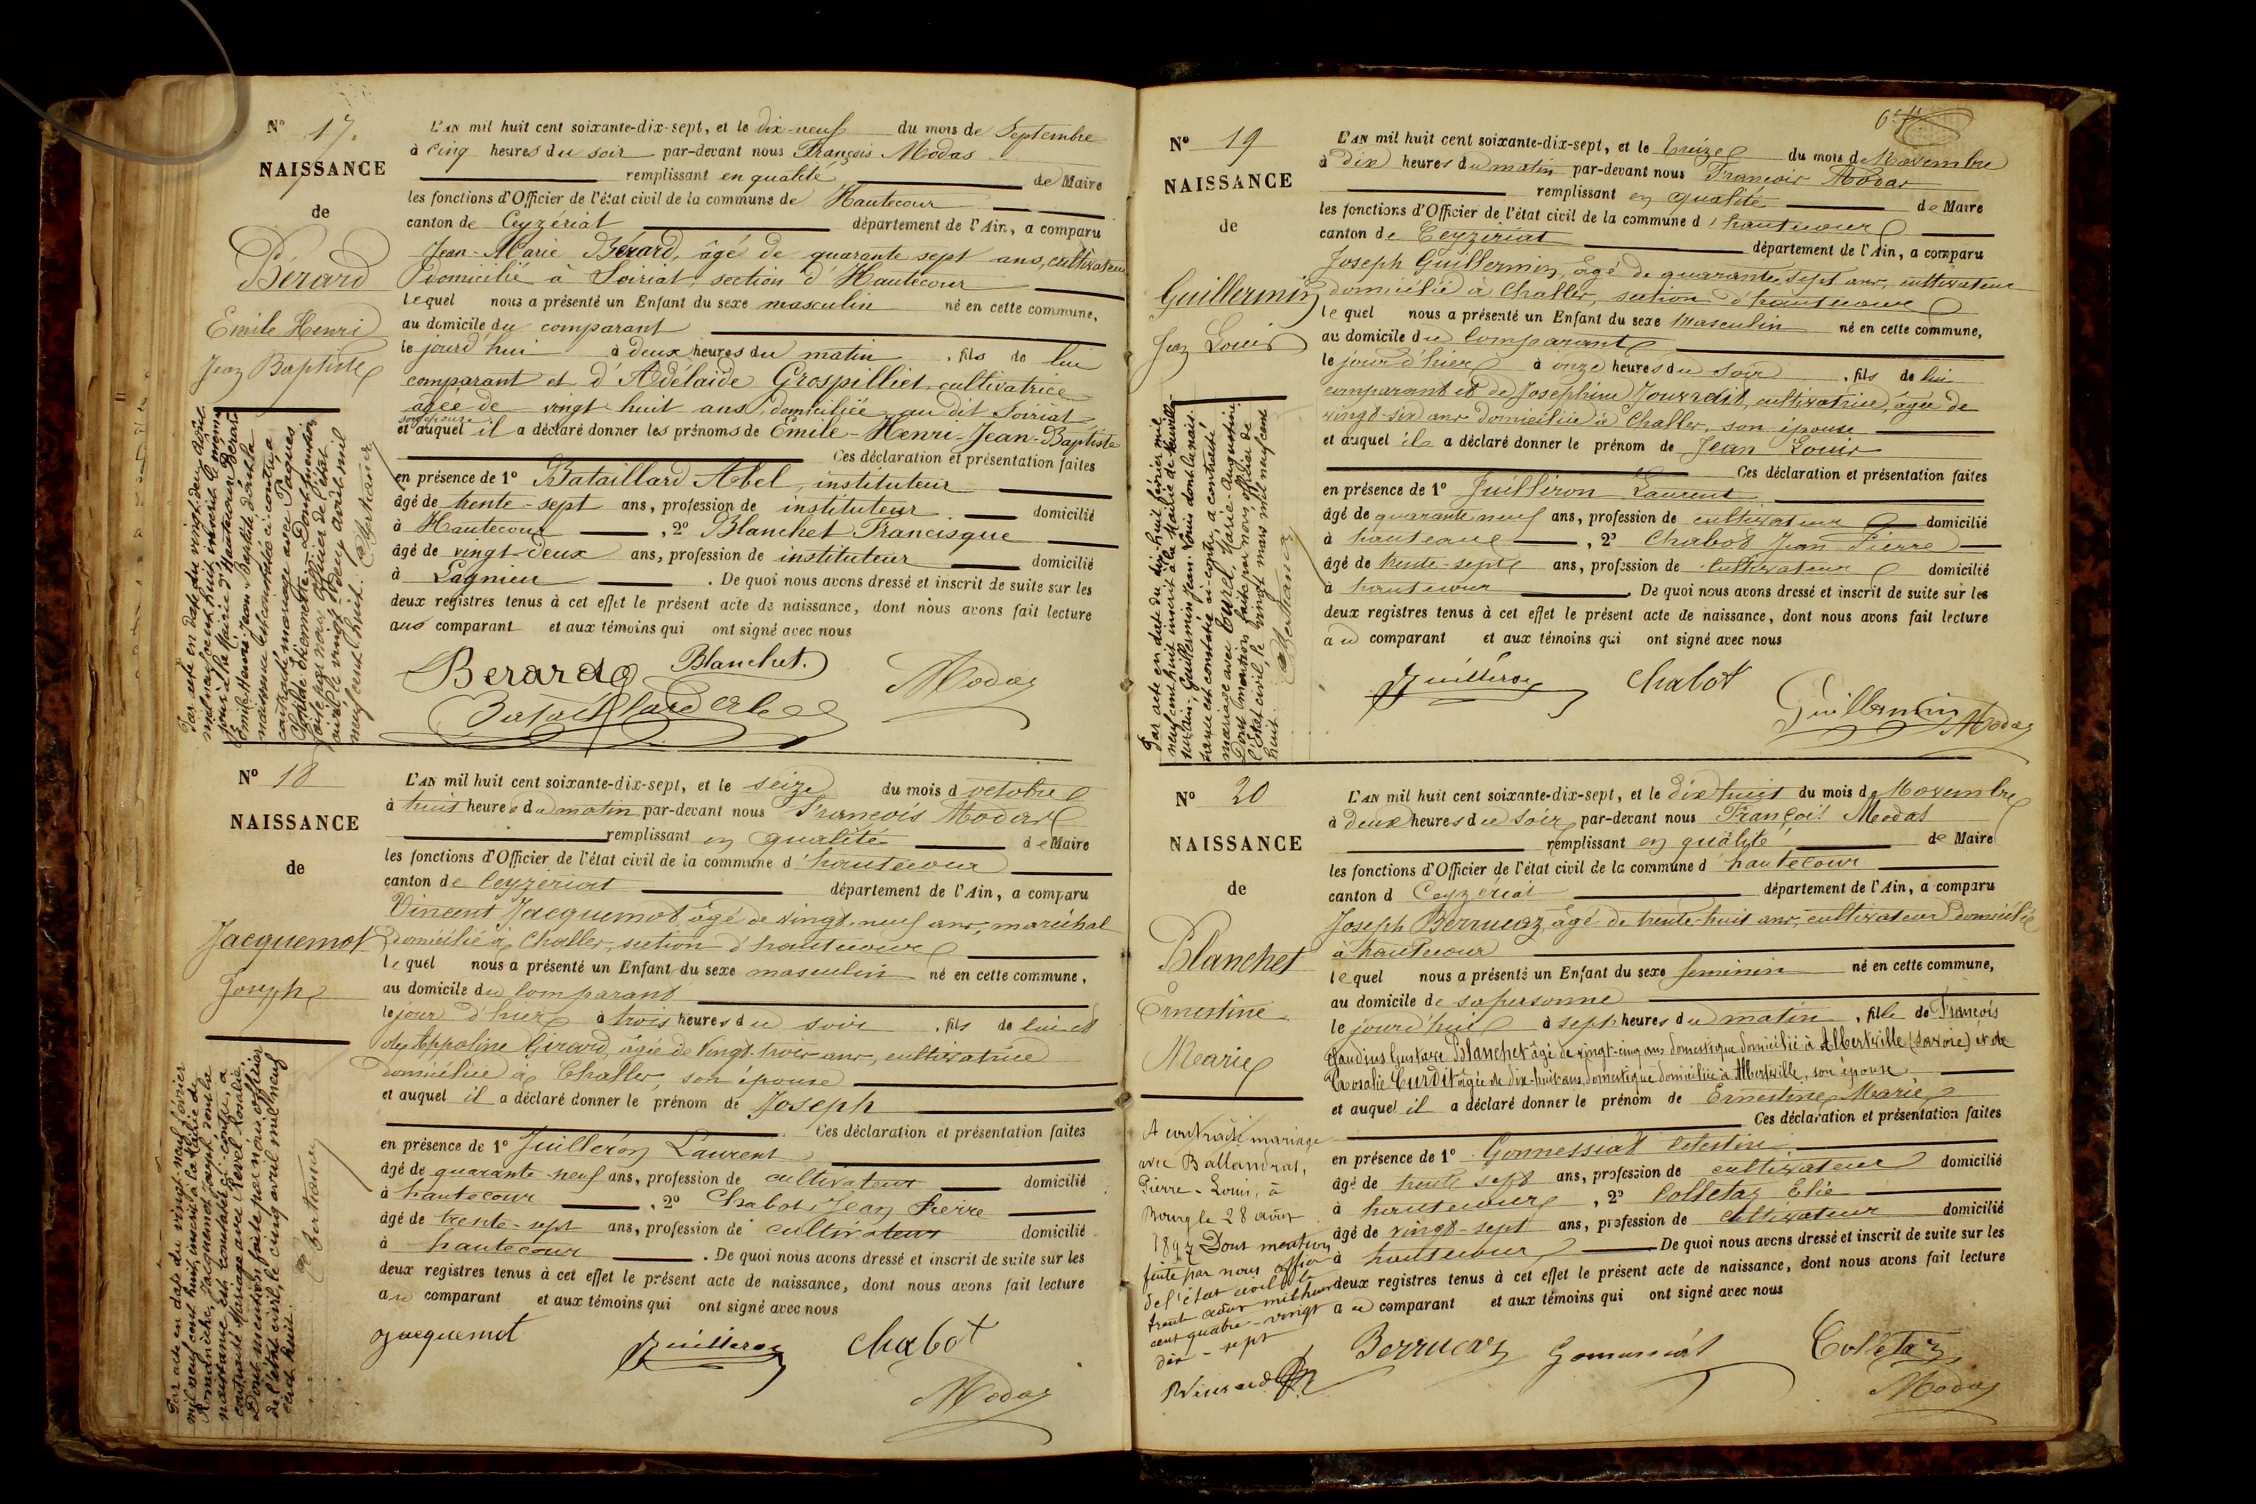 N° 17.
NAISSANCE
de
Bérard
Emile Henri
Jean Baptiste
L'AN mil huit cent soixante-dix-sept, et le dix-neuf du mois de Septembre
à cinq heures du soir par-devant nous François Modas
remplissant en qualité de Maire
les fonctions d'Officier de l'état civil de la commune de Hautecour
canton de Ceyzériat département de l'Ain, a comparu
Jean-Marie Bérard, âgé de quarante sept ans, cultivateur
domicilié à Soiriat, section d'Hautecour
lequel nous a présenté un Enfant du sexe masculin né en cette commune,
au domicile du comparant
le jourd'hui à deux heures du matin, fils de lui
comparant et d'Adélaïde Grospilliet, cultivatrice
âgée de vingt huit ans, domiciliée au dit Soiriat
son épouse
et auquel il a déclaré donner les prénoms de Emile-Henri-Jean-Baptiste
Ces déclaration et présentation faites
en présence de 1° Bataillard Abel, instituteur
âgé de trente-sept ans, profession de instituteur domicilié
à Hautecour, 2° Blanchet Francisque
âgé de vingt-deux ans, profession de instituteur domicilié
à Lagnieu. De quoi nous avons dressé et inscrit de suite sur les
deux registres tenus à cet effet le présent acte de naissance, dont nous avons fait lecture
aux comparant et aux témoins qui ont signé avec nous
Berard Blanchet.
Bataillard Abel Modas
Par acte en date du vingt-deux août
mil neuf cent huit inscrit le même
jour à la Mairie d'Hautecour Bérard
Emile-Henri-Jean-Baptiste dont la
naissance est constatée ci-contre a
contracté mariage avec Pâques
Clotilde Etiennette. Dont mention
faite par nous, officier de l'état
civil le vingt-deux août mil
neuf cent huit.
N° 18
NAISSANCE
de
Jacquemot
Joseph
L'AN mil huit cent soixante-dix-sept, et le seize du mois d octobre
à huit heures du matin par-devant nous François Modas
remplissant en qualité de Maire
les fonctions d'Officier de l'état civil de la commune d'hautecour
canton de Ceyzériat département de l'Ain, a comparu
Vincent Jacquemot âgé de vingt-neuf ans, maréchal
domicilié à Challes, section d'hautecour
lequel nous a présenté un Enfant du sexe masculin né en cette commune,
au domicile du comparant
le jour d'hier à trois heures du soir, fils de lui et
de Appoline Girard, âgée de vingt-trois ans, cultivatrice
domiciliée à Challes, son épouse
et auquel il a déclaré donner le prénom de Joseph
Ces déclaration et présentation faites
en présence de 1° Juilleron Laurent
âgé de quarante-neuf ans, profession de cultivateur domicilié
à hautecour, 2° Chabot Jean Pierre
âgé de trente-sept ans, profession de cultivateur domicilié
à hautecour. De quoi nous avons dressé et inscrit de suite sur les
deux registres tenus à cet effet le présent acte de naissance, dont nous avons fait lecture
au comparant et aux témoins qui ont signé avec nous
Jacquemot Juilleron Chabot
Modas
Par acte en date du vingt-neuf février
mil neuf cent huit, inscrit à la Mairie de
Romanèche, Jacquemot Joseph dont la
naissance est constatée ci-contre, a
contracté Mariage avec Revel Rosalie.
Dont mention faite par nous officier
de l'état civil, le cinq avril mil neuf
cent huit.
N° 19
NAISSANCE
de
Guillermin
Jean Louis
L'AN mil huit cent soixante-dix-sept, et le treize du mois de Novembre
à dix heures du matin par-devant nous François Modas
remplissant en qualité de Maire
les fonctions d'Officier de l'état civil de la commune d'hautecour
canton de Ceyzériat département de l'Ain, a comparu
Joseph Guillermin, âgé de quarante-sept ans, cultivateur
domicilié à Challes, section d'hautecour
lequel nous a présenté un Enfant du sexe masculin né en cette commune,
au domicile du comparant
le jour d'hier à onze heures du soir, fils de lui
comparant et de Joséphine cultivatrice, âgée de
vingt-six ans domiciliée à Challes, son épouse
et auquel il a déclaré donner le prénom de Jean Louis
Ces déclaration et présentation faites
en présence de 1° Juilleron Laurent
âgé de quarante neuf ans, profession de cultivateur domicilié
à hautecour, 2° Chabot Jean Pierre
âgé de trente-sept ans, profession de cultivateur domicilié
à hautecour. De quoi nous avons dressé et inscrit de suite sur les
deux registres tenus à cet effet le présent acte de naissance, dont nous avons fait lecture
au comparant et aux témoins qui ont signé avec nous
Juilleron Chabot
Guillermin Modas
Par acte en date du dix-huit février mil
neuf cent huit inscrit à la Mairie de Neuville-
sur-Ain, Guillermin Jean-Louis dont la nais-
sance est constatée ci-contre, a contracté
mariage avec Curel Marie-Augustine.
Dont mention faite par nous officier de
l'état civil, le vingt mars mil neuf cent
huit.
N° 20
NAISSANCE
de
Blanchet
Ernestine
Marie
L'AN mil huit cent soixante-dix-sept, et le dix huit du mois de Novembre
à deux heures du soir par-devant nous François Modas
remplissant en qualité de Maire
les fonctions d'Officier de l'état civil de la commune d hautecour
canton d Ceyzériat département de l'Ain, a comparu
Joseph Berrucaz, âgé de trente-huit ans, cultivateur domicilié
à hautecour
lequel nous a présenté un Enfant du sexe féminin né en cette commune,
au domicile de sa personne
le jourd'hui à sept heures du matin, fille de François
Claudius Gustave Blanchet âgé de vingt-cinq ans domestique domicilié à Albertville (Savoie) et de
Rosalie Curdit âgée de dix-huit ans, domestique domiciliée à Albertville, son épouse
et auquel il a déclaré donner le prénom de Ernestine Marie
Ces déclaration et présentation faites
en présence de 1° Gonnessiat Célestin
âgé de trente sept ans, profession de cultivateur domicilié
à hautecour, 2° Colletaz Elie
âgé de vingt-sept ans, profession de cultivateur domicilié
à hautecour De quoi nous avons dressé et inscrit de suite sur les
deux registres tenus à cet effet le présent acte de naissance, dont nous avons fait lecture
au comparant et aux témoins qui ont signé avec nous
Berrucaz Gonnessiat Colletaz
Modas
A contracté mariage
avec Ballandras,
Pierre-Louis, à
Bourg le 28 août
1897 Dont mention
faite par nous officier
de l'état civil le
trente août mil huit
cent quatre-vingt
dix-sept